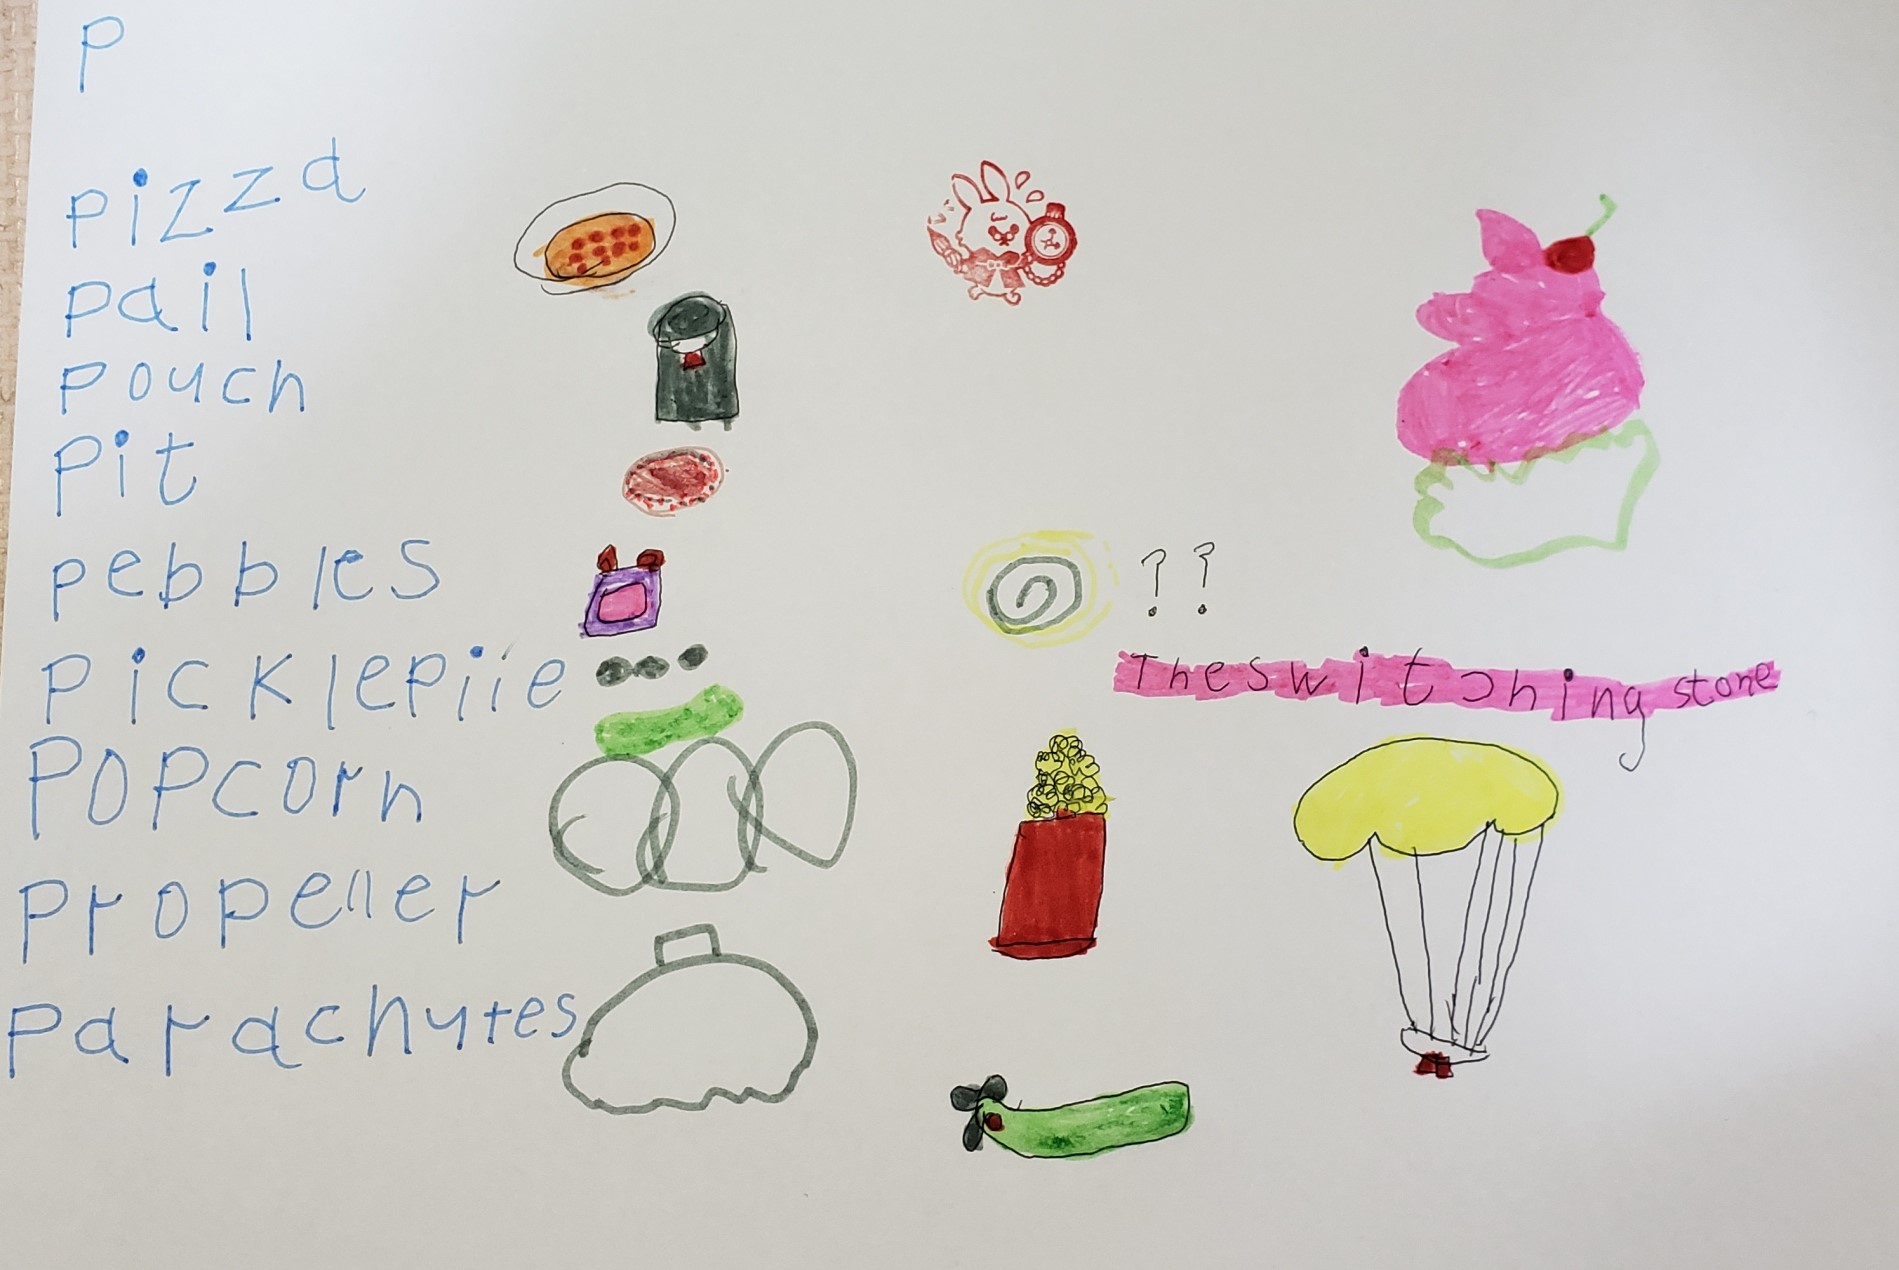 P
pizza
pail
pouch
pit
pebbles
picklepiie
popcorn
propeller
parachutes
??
The switching stone